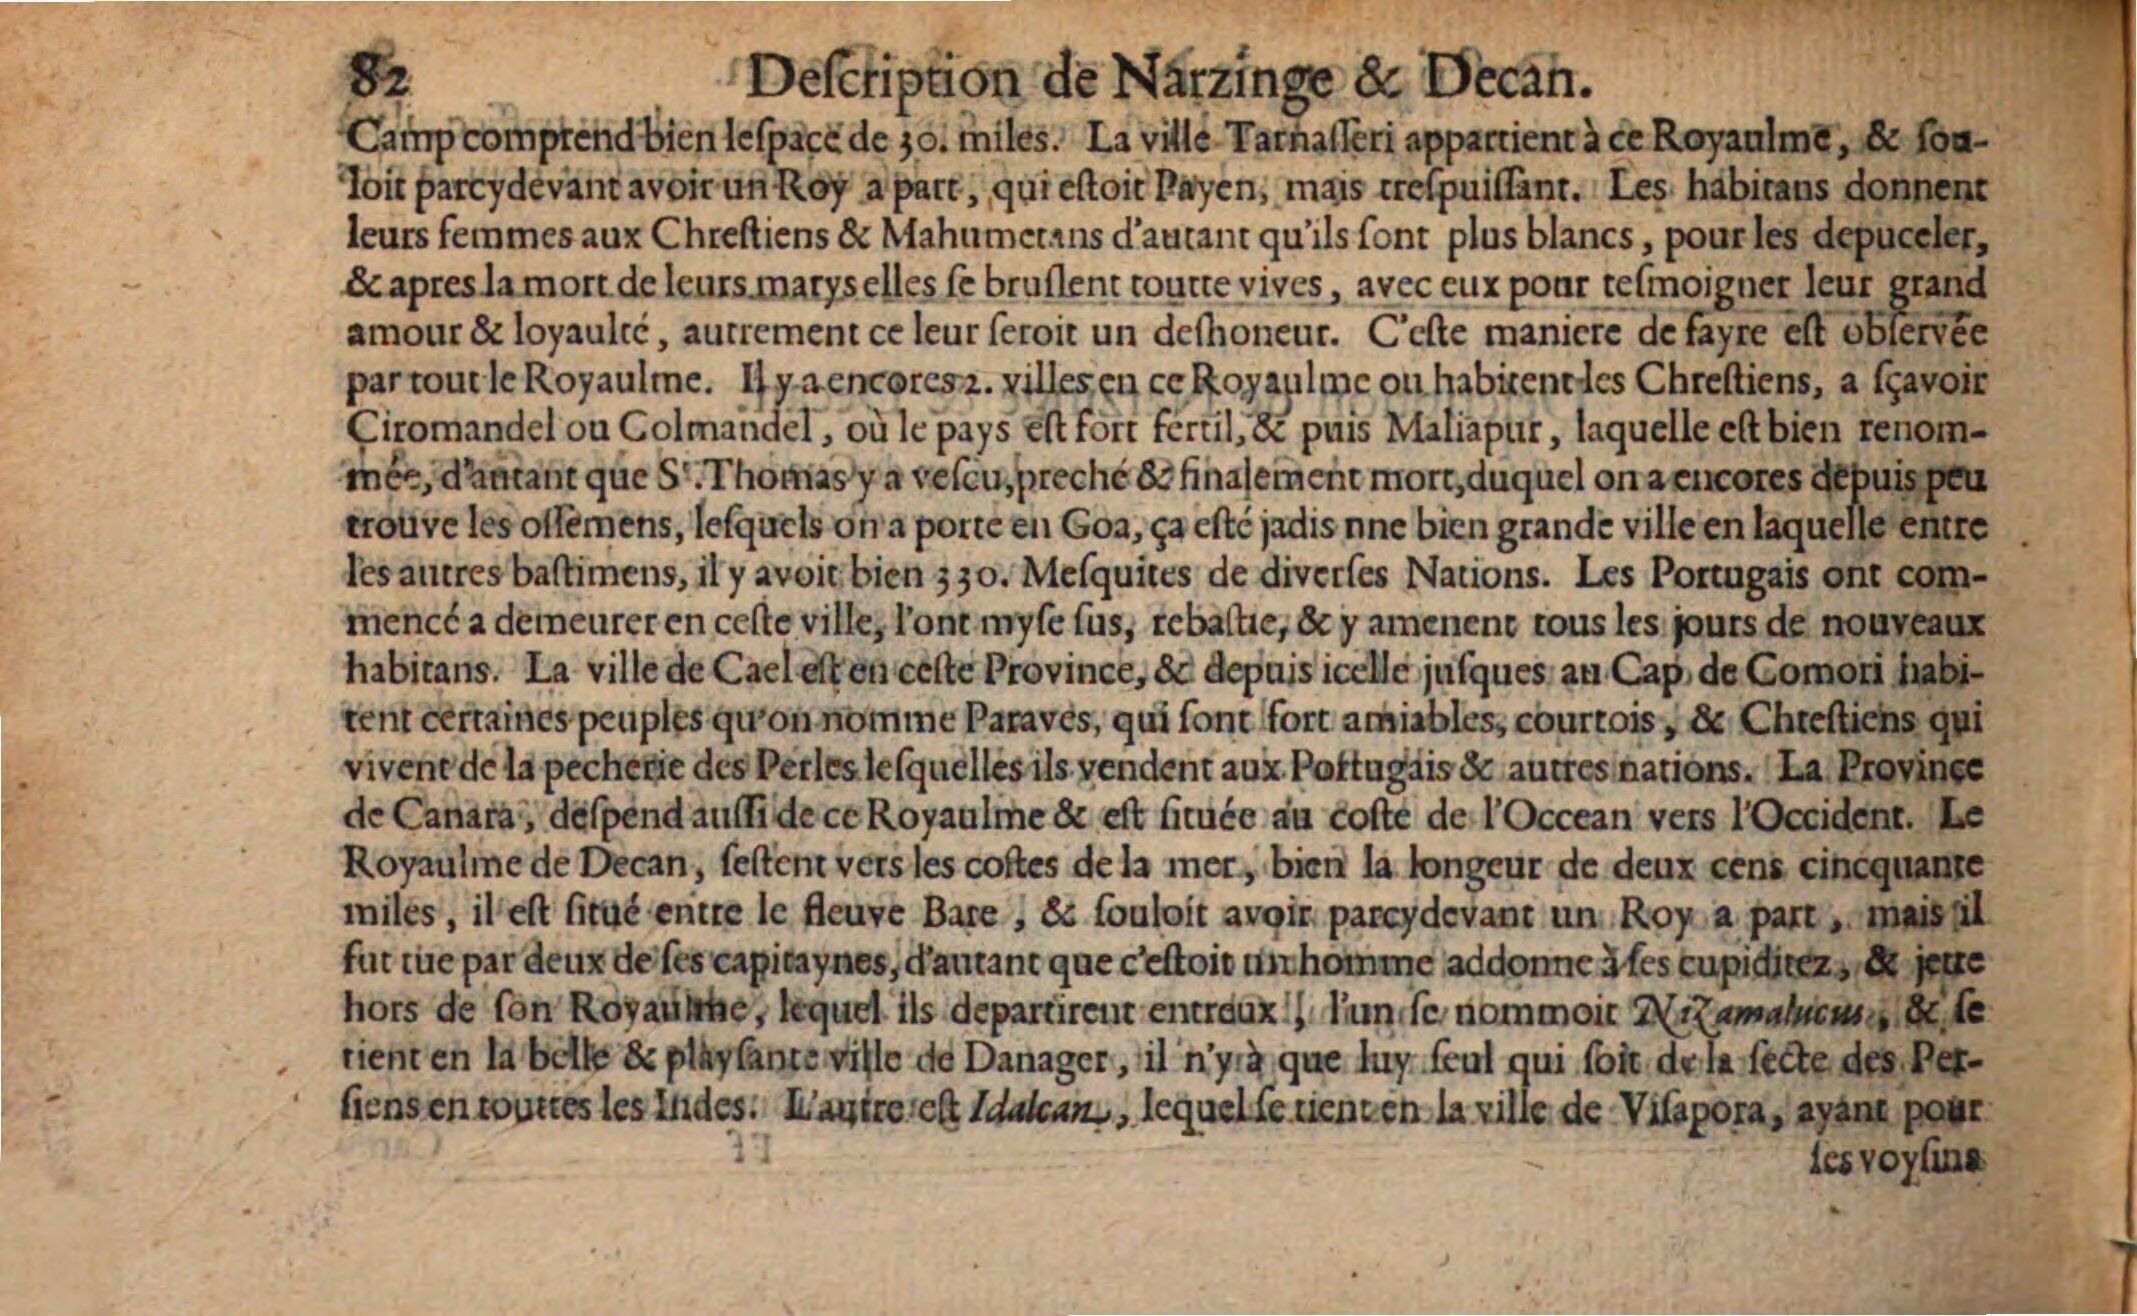 82 Deſcription de Narzinge & Decan.
Camp comprend bien leſpace de 30. miles. La ville Tarnaſſeri appartient à ce Royaulme, & ſou-
loit parcydevant avoir un Roy a part, qui eſtoit Payen, mais treſpuiſſant. Les habitans donnent
leurs femmes aux Chreſtiens & Mahumetans d'autant qu'ils ſont plus blancs, pour les depuceler,
& apres la mort de leurs marys elles ſe bruſlent toutte vives, avec eux pour teſmoigner leur grand
amour & loyaulté, autrement ce leur ſeroit un deſhoneur. C'eſte maniere de fayre eſt obſervée
par tout le Royaulme. Il y a encores 2. villes en ce Royaulme ou habitent les Chreſtiens, a ſçavoir
Ciromandel ou Colmandel, où le pays eſt fort fertil, & puis Maliapur, laquelle eſt bien renom-
mée, d'autant que Sᵗ. Thomas y a veſcu, preché & finalement mort, duquel on a encores depuis peu
trouve les oſſemens, leſquels on a porte en Goa, ça eſté jadis nne bien grande ville en laquelle entre
les autres baſtimens, il y avoit bien 330. Meſquites de diverſes Nations. Les Portugais ont com-
mencé a demeurer en ceſte ville, l'ont myſe ſus, rebaſtie, & y amenent tous les jours de nouveaux
habitans. La ville de Cael eſt en ceſte Province, & depuis icelle juſques au Cap de Comori habi-
tent certaines peuples qu'on nomme Paraves, qui ſont fort amiables, courtois, & Chreſtiens qui
vivent de la pecherie des Perles leſquelles ils vendent aux Portugais & autres nations. La Province
de Canara, deſpend auſſi de ce Royaulme & eſt ſituée au coſte de l'Occean vers l'Occident. Le
Royaulme de Decan, ſeſtent vers les coſtes de la mer, bien la longeur de deux cens cincquante
miles, il eſt ſitué entre le fleuve Bate, & ſouloit avoir parcydevant un Roy a part, mais il
fut tüe par deux de ſes capitaynes, d'autant que c'eſtoit un homme addonne à ſes cupiditez, & jette
hors de ſon Royaulme, lequel ils departirent entreux, l'un ſe nommoit Nizamalucus, & ſe
tient en la belle & playſante ville de Danager, il n'y à que luy ſeul qui ſoit de la ſecte des Per-
ſiens en touttes les Indes. L'autre eſt Idalcan, lequel ſe tient en la ville de Viſapora, ayant pour
ſes voyſins